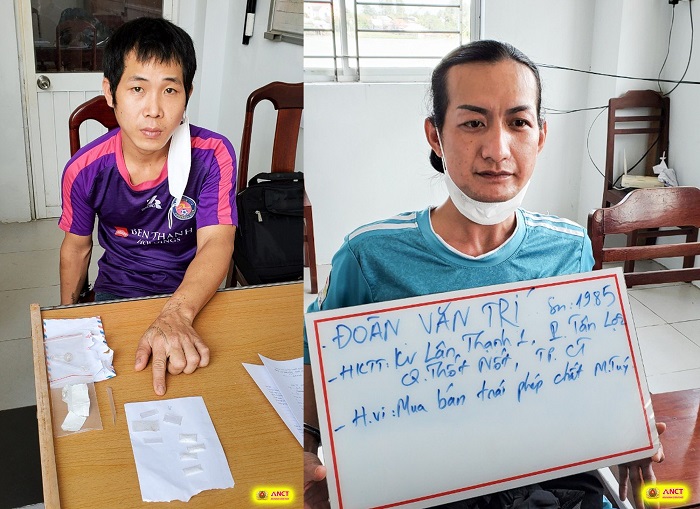 BEN THANH
HOLDINGS
ĐOÀN VĂN TRÍ Sn: 1985
- HKTT: KV Lân Thạnh 1, P. Tân Lộc
Q. Thốt Nốt, TP. CT
- H.vi: Mua bán trái phép chất M.Tuý.
ANCT
ANCT